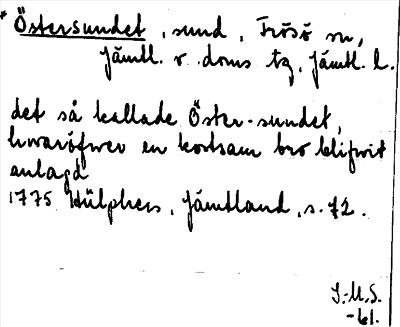 * Östersundet, sund, Frösö sn,
Jämtl. v. doms tg, Jämtl. l.
det så kallade Öster-sundet,
hwaröfwer en kostsam bro blifwit
anlagd
1775 Hülphers, Jämtland, s. 72.
I.M.S.
-61.